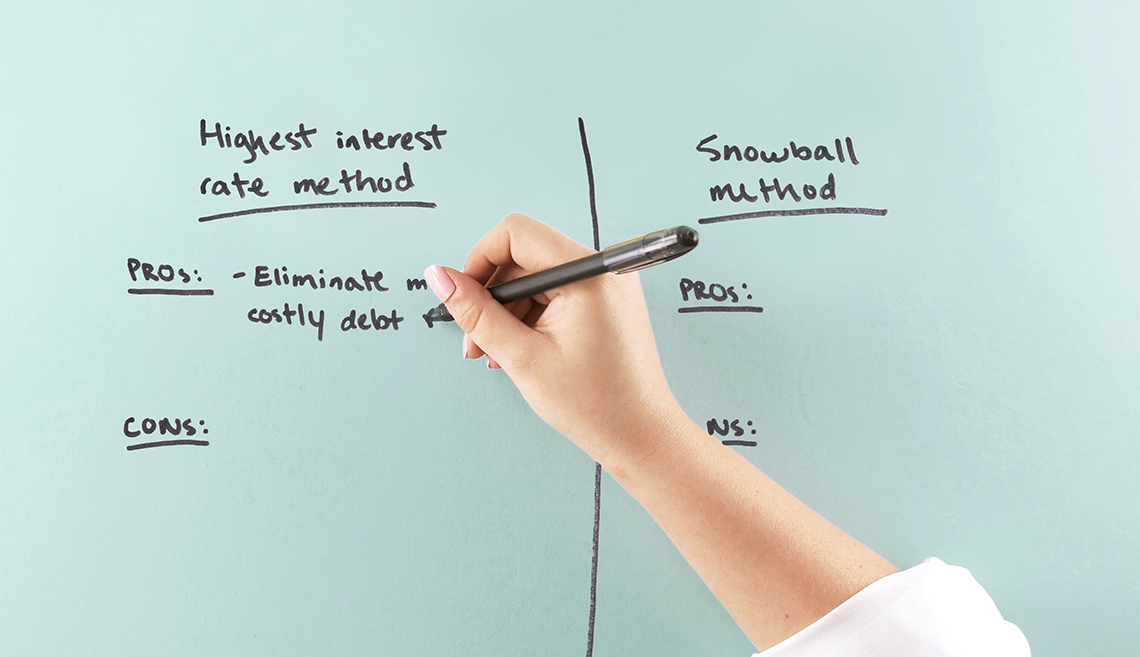 Highest interest
rate method
PROs: - Eliminate
costly debt
CONS:
Snowball
method
PROs:
NS: